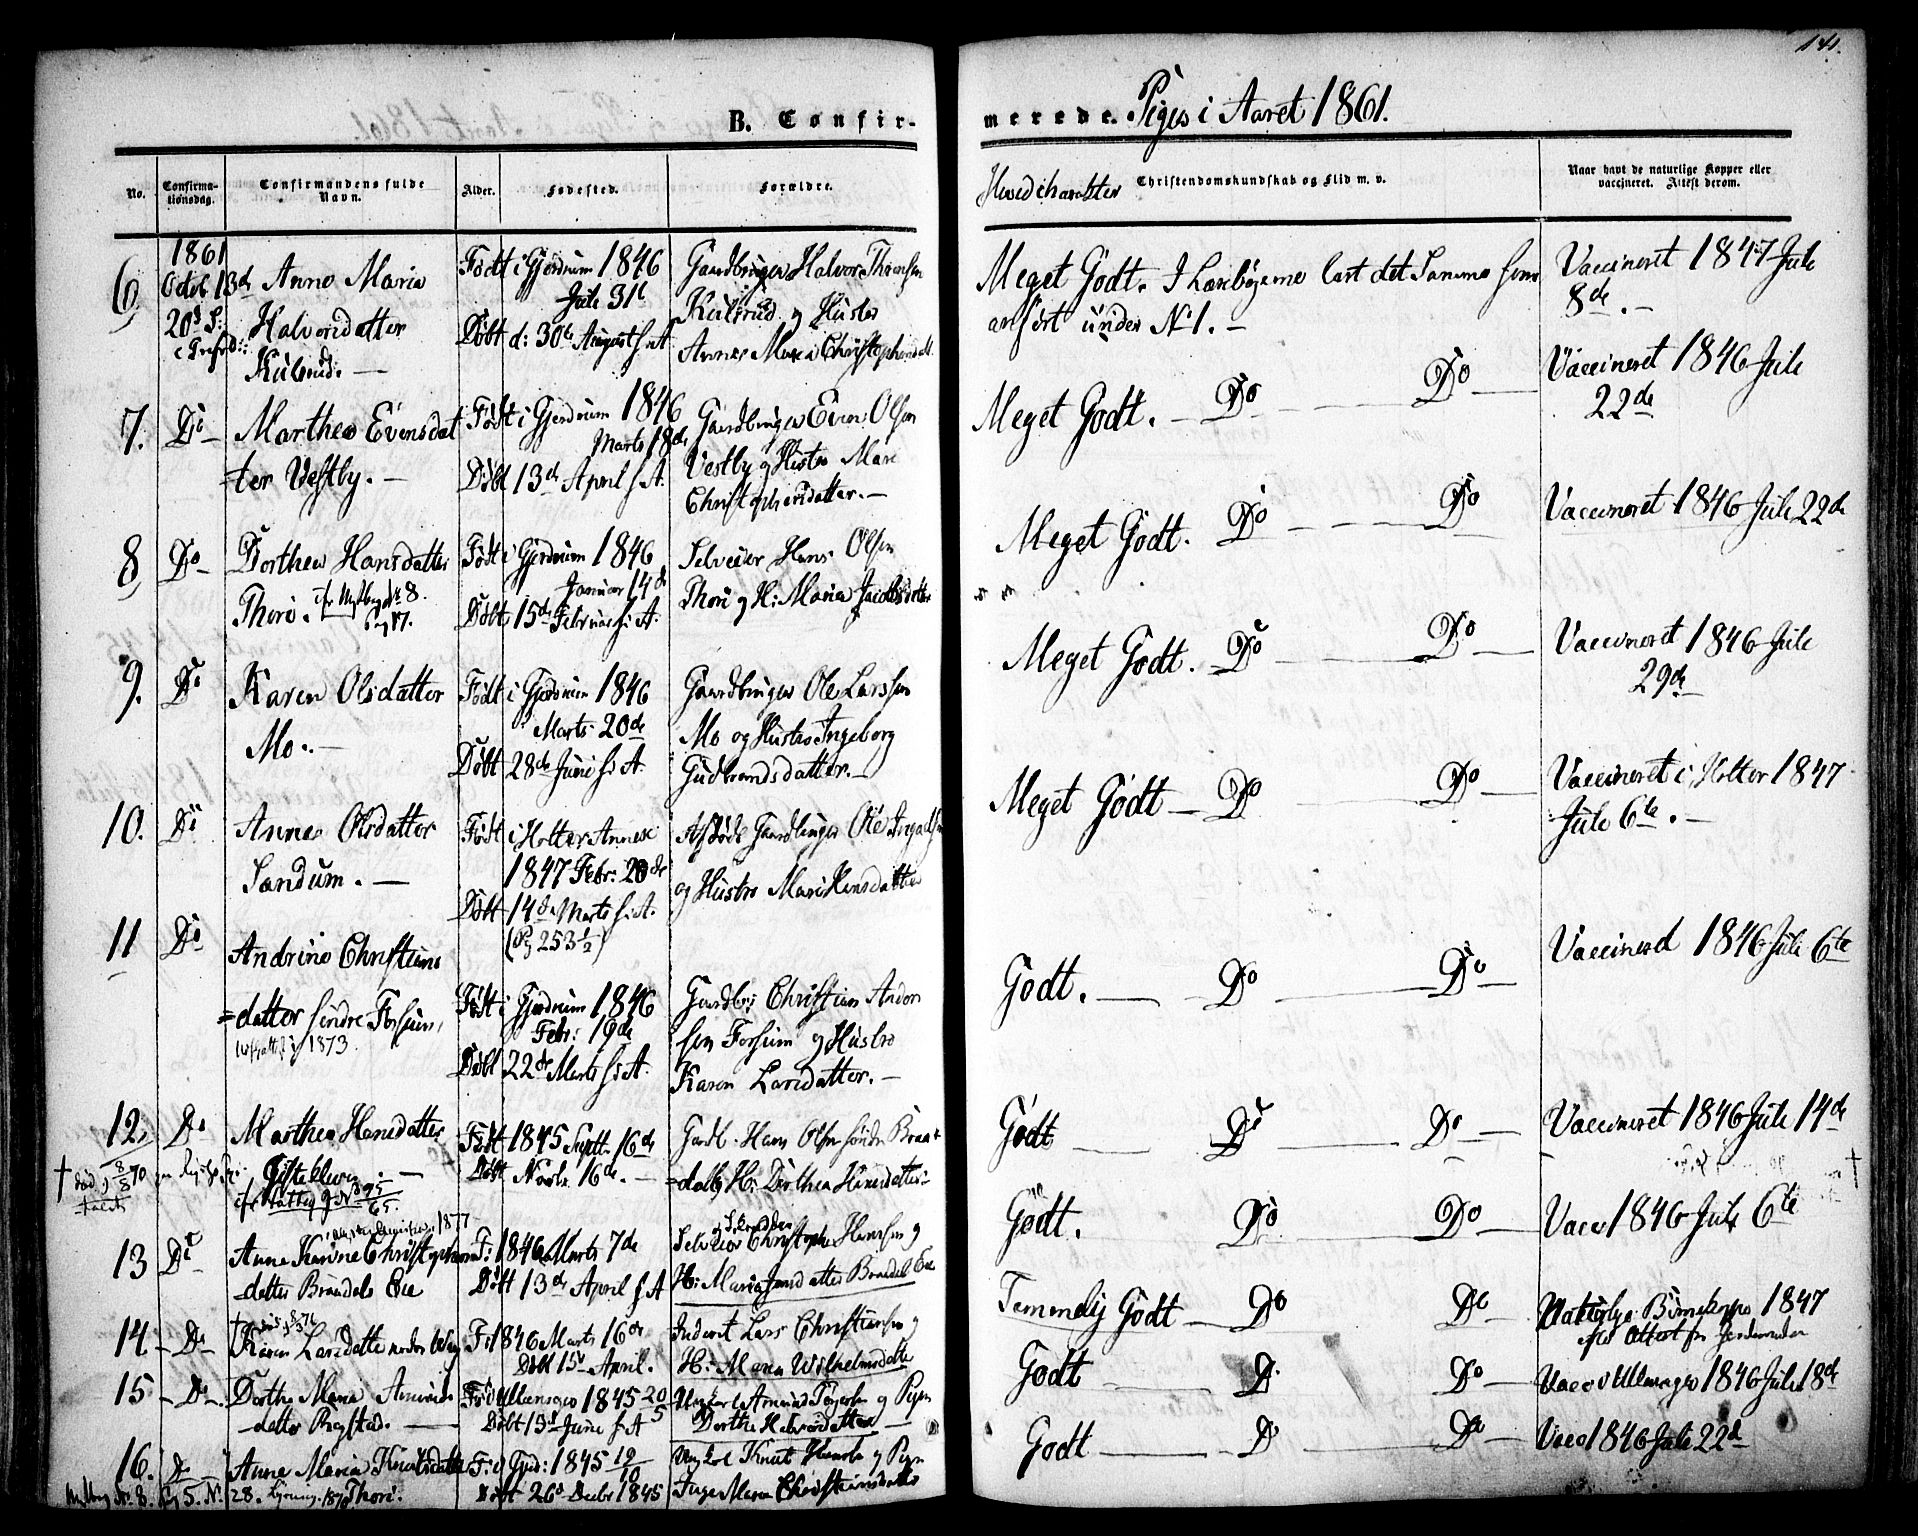 141.
B. Confir-
merede. Piger i Aaret 1861.
No.
Confirma-
tionsdag.
Confirmandens fulde
Navn.
Alder.
Fødested.
Forældre.
Hovedcharakter Christendomskundskab og Flid m. v.
Naar havt de naturlige Kopper eller
vaccineret. Attest derom.
6,
1861
Octob 13de
20d S:
Anne Maria
Halvorsdatter
Kulsrud. —
Født i Gjerdrum 1846
Juli 31te
Døbt d: 30te August s. A
Gaardbruger Halvor
Kulsrud og Hustro
Anne Maria Christophersdatt.
Meget Godt. I Lærebøgerne læst det Samme som
anført under No 1. —
Vaccineret 1847 Juli
8de. —
7.
Do
Marthea Evensdat
=ter Vestby. —
Født i Gjerdrum 1846
Marts 18de
Døbt 13de April s. A.
Gaardbruger Even Olsen
Vestby og Hustro Mari
Christophersdatter. —
Meget Godt. — Do — Do —
Vaccineret 1846 Juli
22de
8,
Do
Dorthea Hansdatter
Thori.
Født i Gjerdrum 1846
Januar 14de
Døbt 15de Februar s. A.
Selveier Hans Olsen
Thori og H: Maria Jacobsdatter
Meget Godt. Do — Do
Vaccineret 1846 Juli 22de
9.
Do
Karen Olsdatter
Mo. —
Født i Gjerdrum 1846
Marts 20de
Døbt 28de Juni s. A.
Gaardbruger Ole Larssen
Mo og Hustro Ingeborg
Gudbrandsdatter. —
Meget Godt. Do — Do —
Vaccineret 1846 Juli
29de
10.
Do
Anne Olsdatter
Sandum. —
Født i Holter Annex
1847 Febr: 20de
Døbt 14de Marts s. A.
(Pg 253½)
Afdøde Gaardbruger Ole
og Hustro Mari Hansdatter
Meget Godt — Do — Do —
Vaccineret i Holter 1847
Juli 6te. —
11
Do
Andrine Christians
=datter søndre Forsum,
1873
Født i Gjerdrum 1846
Febr: 19de
Døbt 22de Marts s. A.
Gaardbr: Christian Ander
sen Forsum og Hustro
Karen Larsdatter. —
Godt. — Do — Do —
Vaccinered 1846 Juli 6te
12,
Do
Marthea Hansdatter
Gistekleven —
95/65.
† død 8/8 70
Født 1845 Septbr 16de
Døbt Novbr. 16de. —
Gaardb. Hans Olsen søndre Bræn
=dalby H: Dorthea Hansdatter
Godt — Do — Do —
Vaccineret 1846 Juli 14de
13
Do
1877
Anne Karine Christophers
datter Brændals Eie
F: 1846 Marts 7de
Døbt 13de April s. A
Selveier Christopher Hanssen og
H: Maria Brændals Eie
Godt. Do Do —
Vacc 1846 Juli 6te
14.
— Do —
Karen Larsdatter
F: 1846 Marts 16de
Døbt 15de April.
Inderst Lars Christiansen og
H: Maren Wilhelmsdatter
Temmelig Godt — Do Do —
Naturlige Børnekopper 1847
15
— Do —
Dorthe Maria Amunds
datter Rogstad. —
F: i Ullensager 1845 20/5
Døbt 15de Juni s. A
Ungkarl Amund og Pigen
Dorthe Halvorsdatter —
Godt — Do Do —
Vacc i Ullensager 1846 Juli 18de
16.
Do
Anne Maria Knudsdatter
Thori.
F: i Gjerd: 1845 19/10
Døbt 26de Decbr 1845
Ungkarl Knut og Pigen
Inger Maria Christiansdatter
Godt — Do — Do —
Vacc 1846 Juli 22d